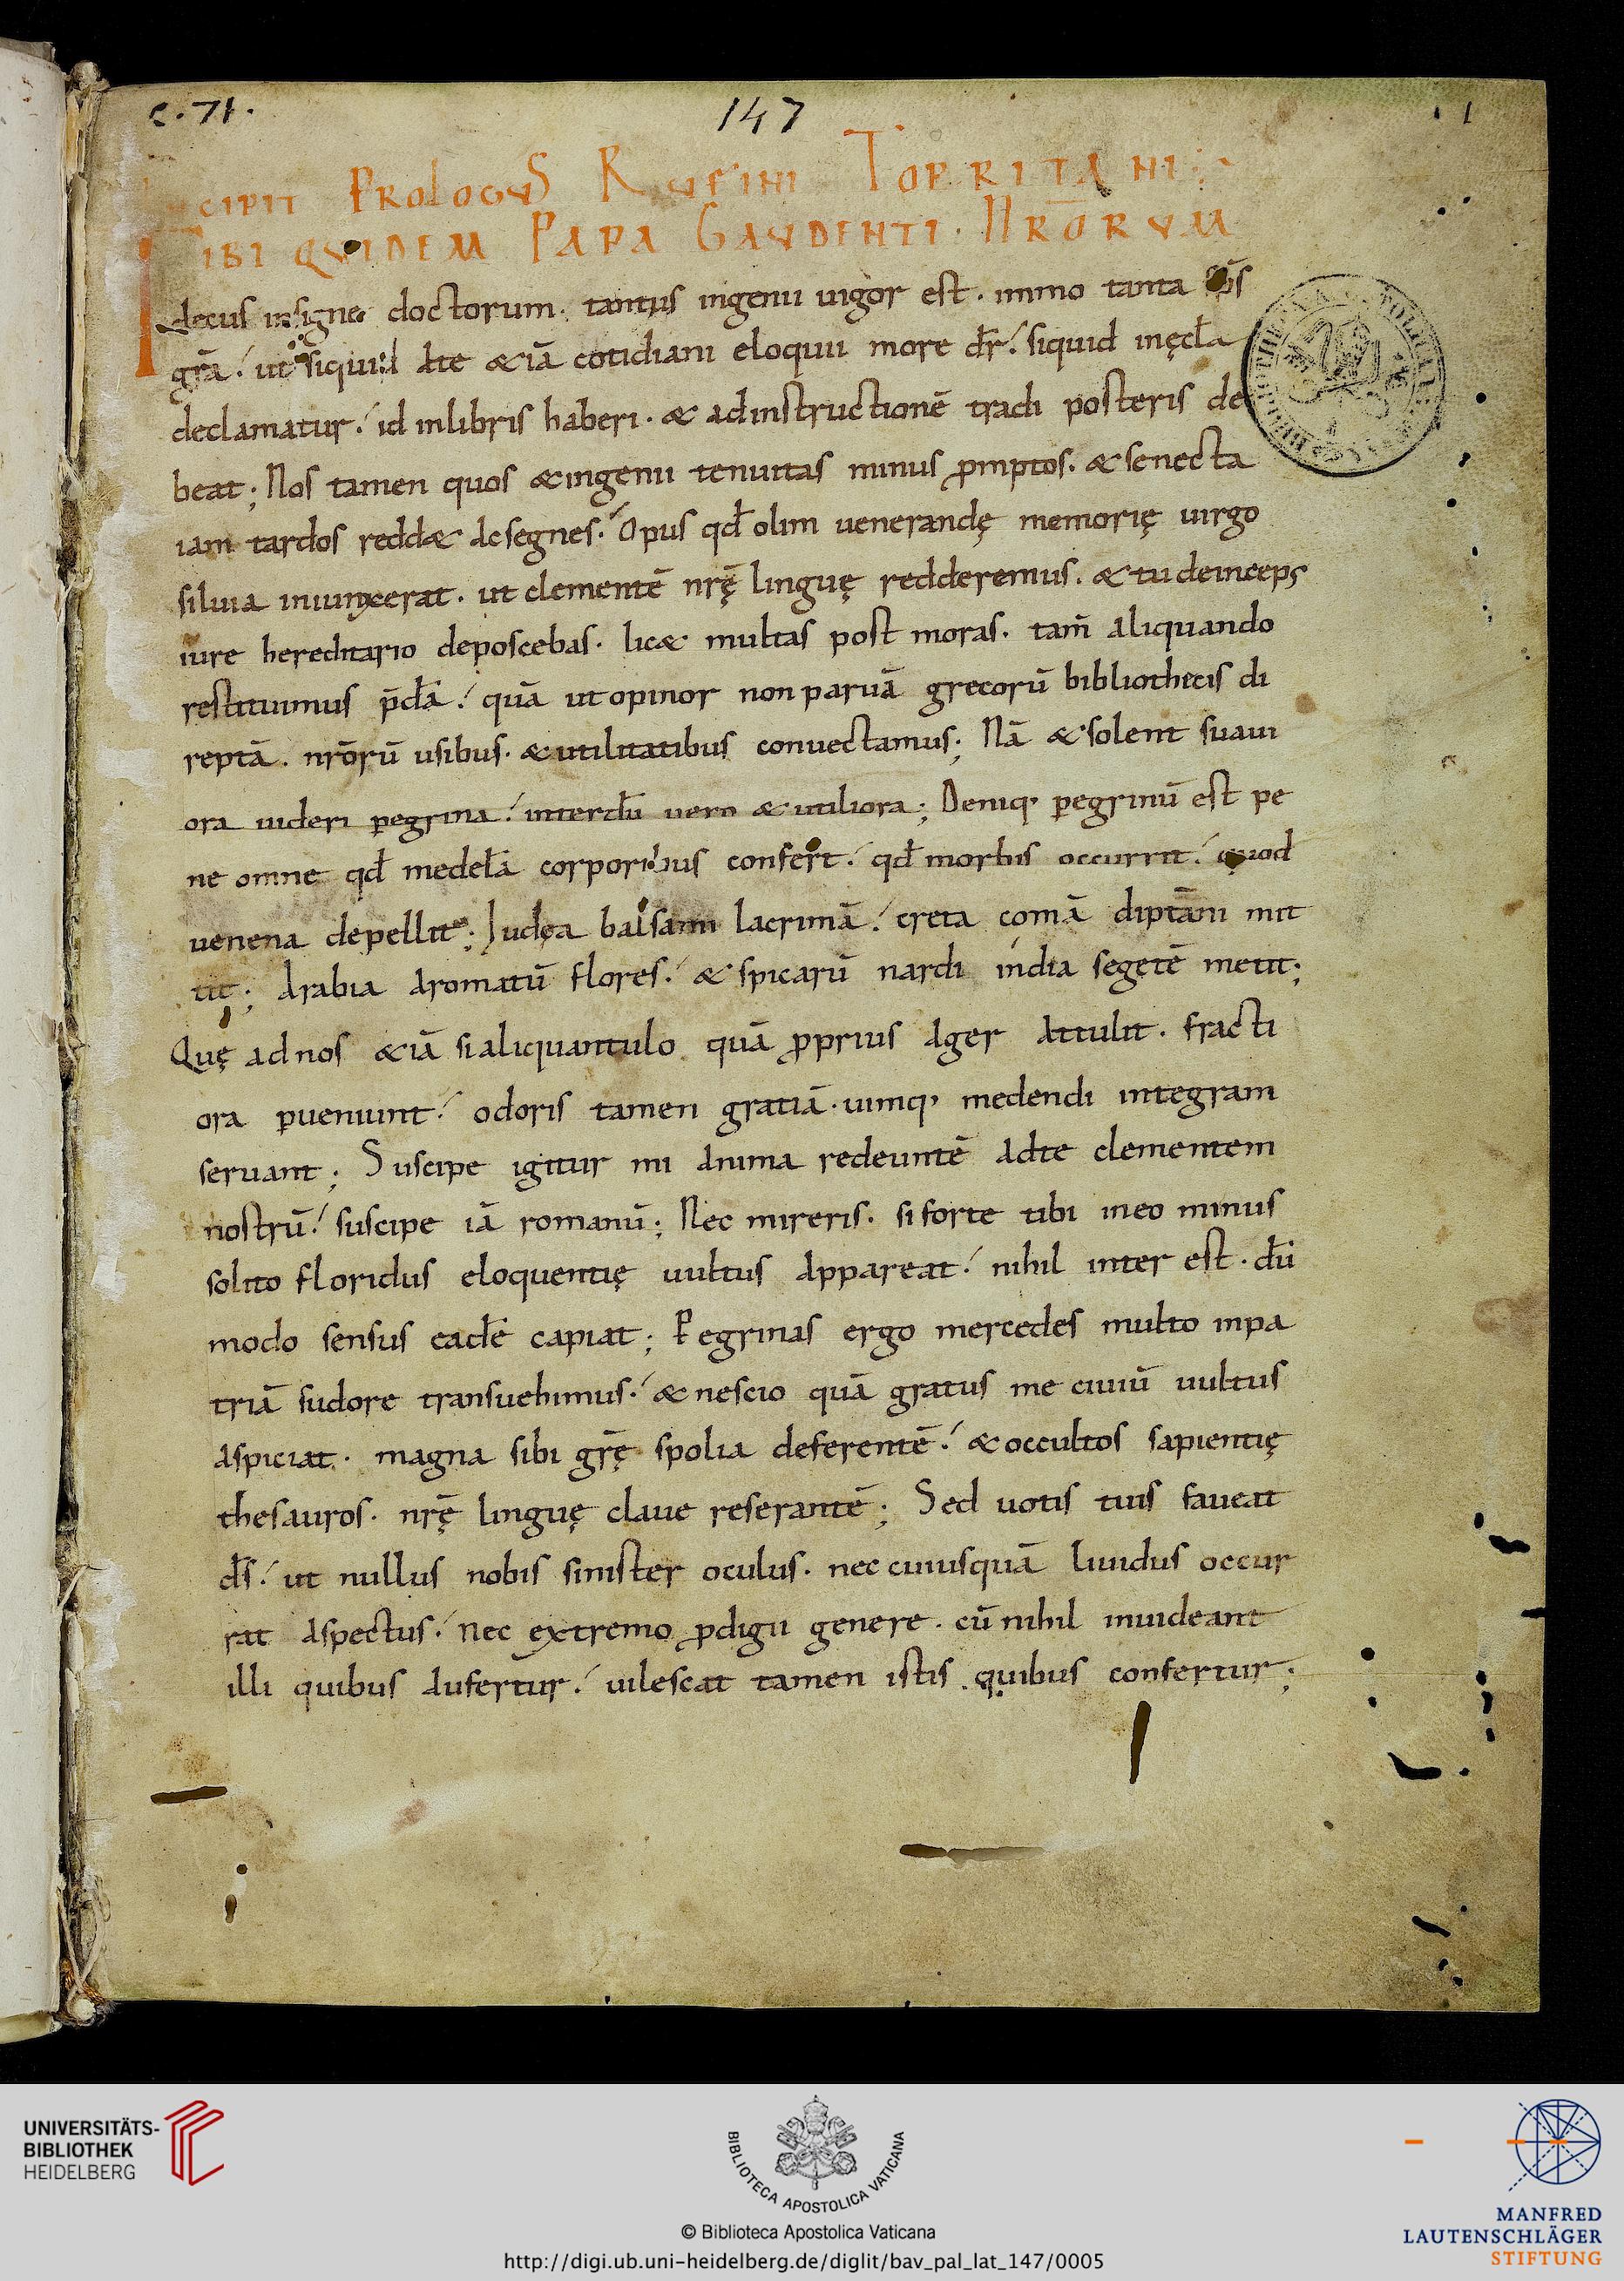 c. 71.
147
1
cipit Prologus Rufini Torritani
Tibi quidem Papa Gaudenti. Nrōrum
decus insigne doctorum. tantus ingenii uigor est. immo tanta sp̄s
gr̄a. ut siquid Ate &iā cotidiani eloquii more dr̄. siquid inęccl̄a
declamatur. id inlibris haberi. & adinstructionē tradi posteris de
beat; Nos tamen quos &ingenii tenuitas minus p̄mptos. & senecta
iam tardos redd& acsegnes. Opus qđ olim uenerandę memorię uirgo
siluia iniunxerat. ut clementē nr̄ę linguę redderemus. & tu deinceps
iure hereditario deposcebas. lic& multas post moras. tam̄ aliquando
restituimus p̄dā. quā ut opinor non paruā grecorū bibliothecis di
reptā. nrōrū usibus. & utilitatibus conuectamus; Nā & solent suaui
ora uideri pegrina. interdū uero & utiliora; Deniq, pegrinū est pe
ne omne qđ medelā corporibus confert. qđ morbis occurrit. quod
uenena depellit; Iudęa balsami lacrimā. creta comā diptāni mit
tit; Arabia Aromatū flores. & spicarū nardi india segetē metit;
Quę ad nos &iā si aliquantulo quā pprius Ager Attulit. fracti
ora pueniunt. odoris tamen gratiā. uimq, medendi integram
seruant; Suscipe igitur mi Anima redeuntē Adte clementem
nostrū. suscipe iā romanū; Nec mireris. si forte tibi ineo minus
solito floridus eloquentię uultus Appareat. nihil inter est. dū
modo sensus eadē capiat; Pegrinas ergo mercedes multo inpa
triā sudore transuehimus. & nescio quā gratus me ciuiū uultus
Aspiciat. magna sibi gr̄ę spolia deferentē. & occultos sapientię
thesauros. nr̄ę linguę claue reserantē; Sed uotis tuis faueat
d̄s. ut nullus nobis sinister oculus. nec cuiusquā liuidus occur
rat Aspectus. nec extremo pdigii genere. cū nihil inuideant
illi quibus Aufertur. uilescat tamen istis quibus confertur;
UNIVERSITÄTS-
BIBLIOTHEK
HEIDELBERG
BIBLIOTECA APOSTOLICA VATICANA
© Biblioteca Apostolica Vaticana
http://digi.ub.uni-heidelberg.de/diglit/bav_pal_lat_147/0005
MANFRED
LAUTENSCHLÄGER
STIFTUNG